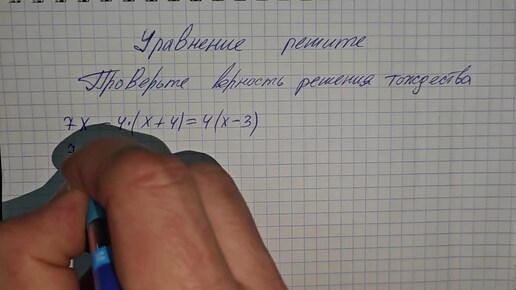 Уравнение решите
Проверьте верность решения тождества
7x - 4·(x+4)=4(x-3)